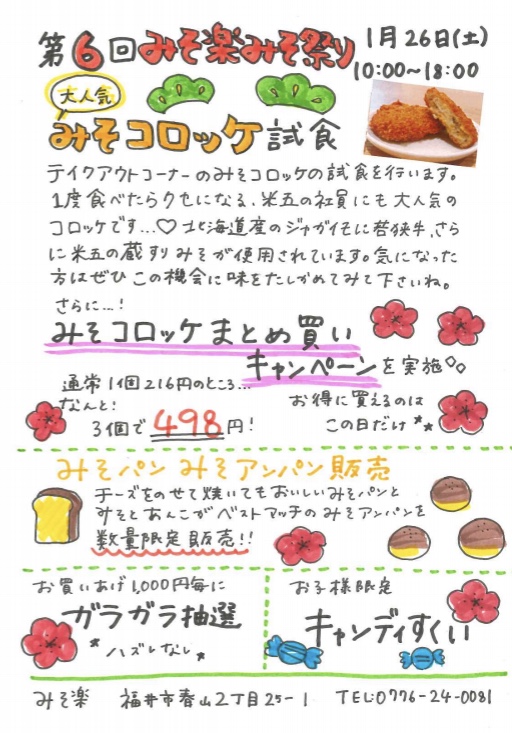 第6回みそ楽みそ祭り
1月26日(土)
10:00〜18:00
大人気
みそコロッケ試食
テイクアウトコーナーのみそコロッケの試食を行います。
1度食べたらクセになる、米五の社員にも大人気の
コロッケです...♡ 北海道産のジャガイモに若狭牛、さら
に米五の蔵すりみそが使用されています。気になった
方はぜひこの機会に味をたしかめてみて下さいね。
さらに...!
みそコロッケまとめ買い
キャンペーンを実施
通常1個216円のところ...
なんと!
3個で498円!
お得に買えるのは
この日だけ
みそパン みそアンパン販売
チーズをのせて焼いてもおいしいみそパンと
みそとあんこがベストマッチのみそアンパンを
数量限定販売!!
お買いあげ1,000円毎に
ガラガラ抽選
*ハズレなし*
お子様限定
キャンディすくい
みそ楽 福井市春山2丁目25-1 TEL:0776-24-0081